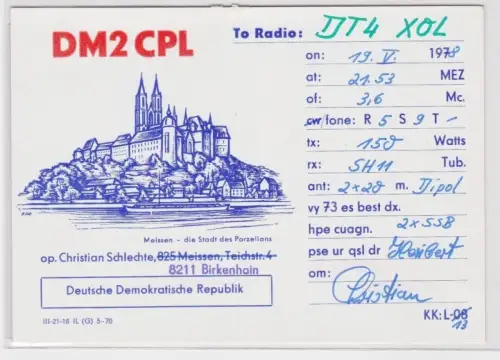 DM2CPL
To Radio: DT4 XOL
on: 19. V. 1978
at: 21.53 MEZ
of: 3,6 Mc.
cw/fone: R 5 S 9 T -
tx: 150 Watts
rx: SH11 Tub.
ant: 2×20 m. Dipol
vy 73 es best dx.
hpe cuagn. 2×SSB
pse ur qsl dr Heribert
om: Christian
KK: L-08
13
Meissen - die Stadt des Porzellans
op. Christian Schlechte, 825 Meissen, Teichstr. 4
8211 Birkenhain
Deutsche Demokratische Republik
III-21-16 IL (G) 5-70